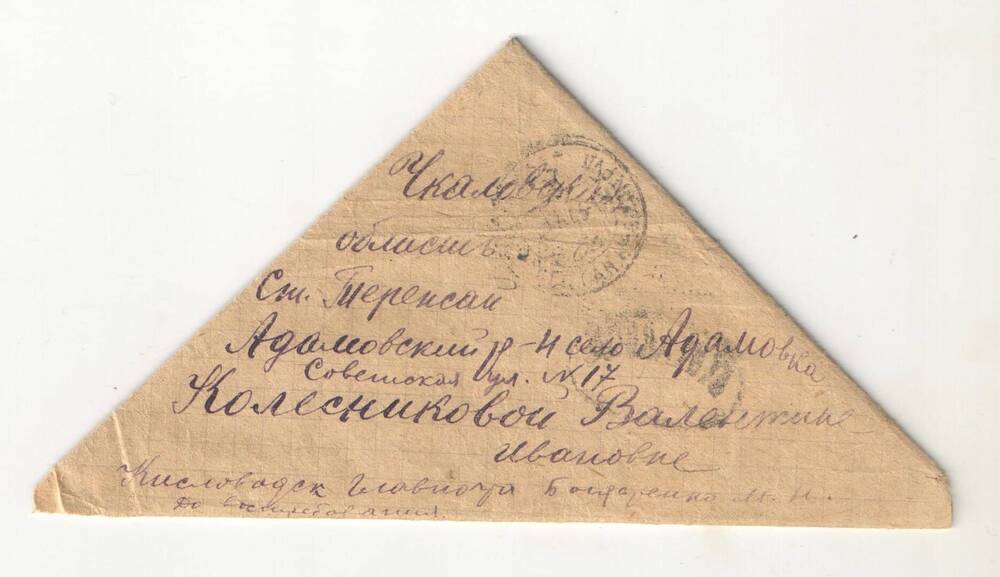 Чкаловская
область
ст. Теренсай
Адамовский р-н село Адамовка
Советская ул. N 17
Колесниковой Валентине
Ивановне
Кисловодск Главпочта Бондаренко М. И.
До востребования.